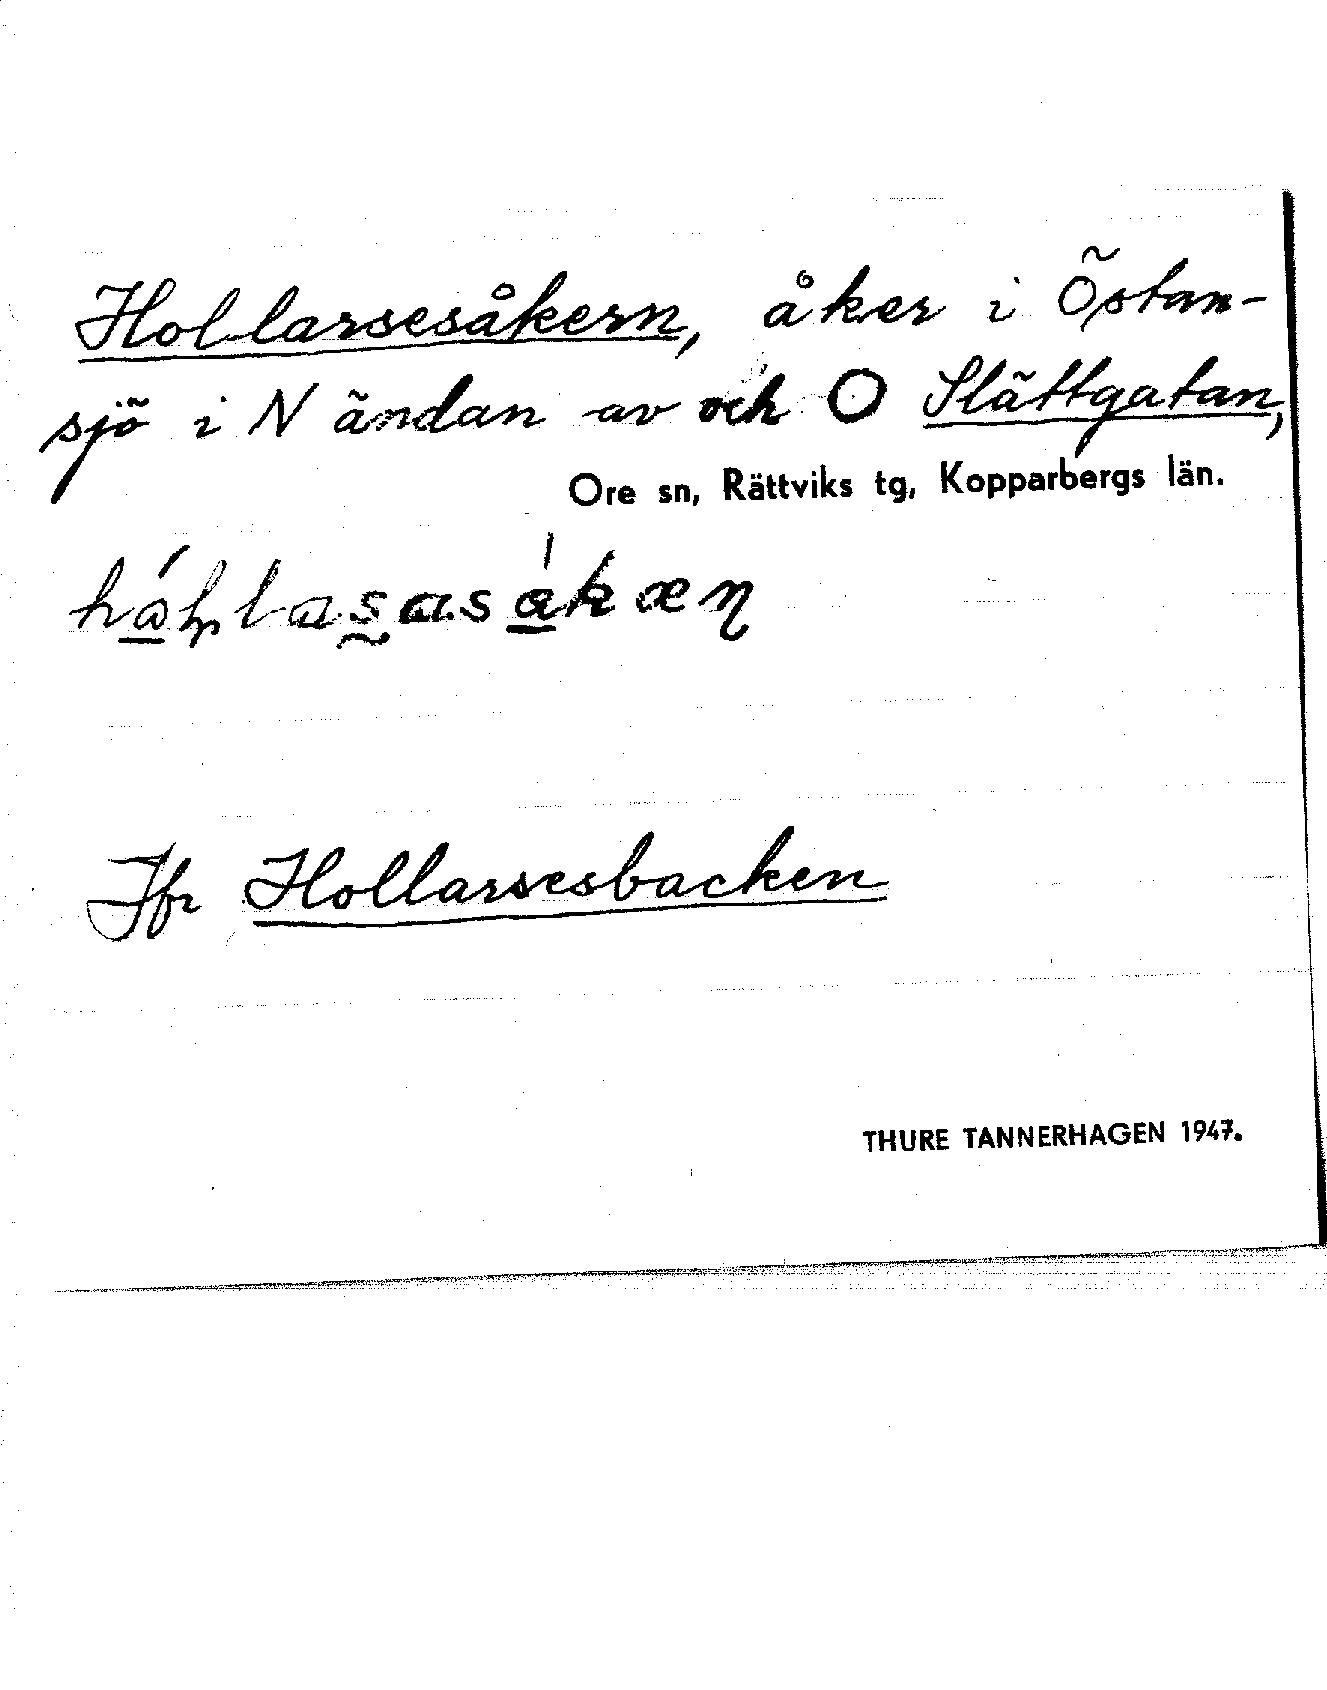 Hollarsesåkern, åker i Östan-
sjö i N ändan av och O Slättgatan,
Ore sn, Rättviks tg, Kopparbergs län.
Jfr Hollarsesbacken
THURE TANNERHAGEN 1947.